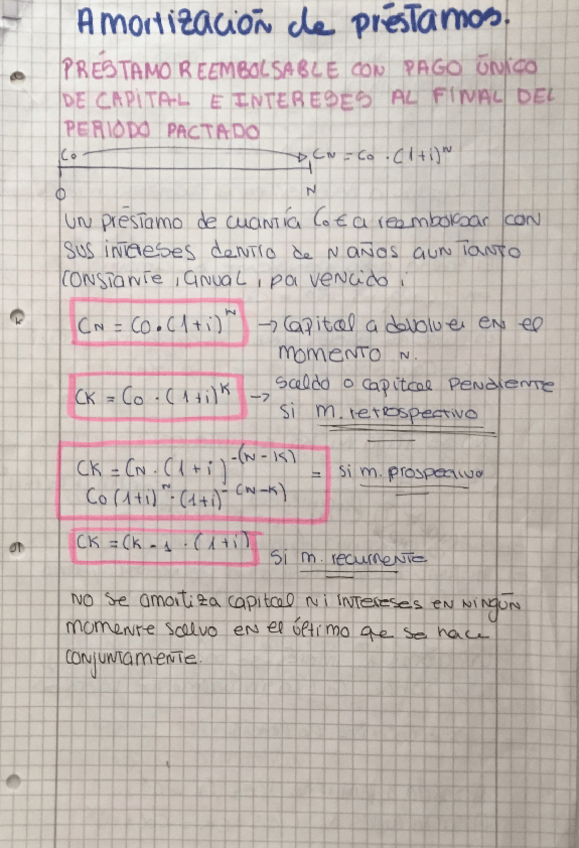 Amortización de préstamos.
PRÉSTAMO REEMBOLSABLE CON PAGO ÚNICO
DE CAPITAL E INTERESES AL FINAL DEL
PERIODO PACTADO
C0 CN = C0 · (1+i)^N
0 N
UN préstamo de cuantía C0 € a reembolsar con
sus intereses dentro de N años a un tanto
constante, anual, pa vencido i
CN = C0 · (1+i)^N → Capital a devolver en el
momento N.
CK = C0 · (1+i)^K → Saldo o capital pendiente
si m. retrospectivo
CK = CN · (1+i)^-(N-K) = si m. prospectivo
C0 (1+i)^N · (1+i)^-(N-K)
CK = CK-1 · (1+i) si m. recurrente
NO se amortiza capital ni intereses en ningún
momento salvo en el último que se hace
conjuntamente.